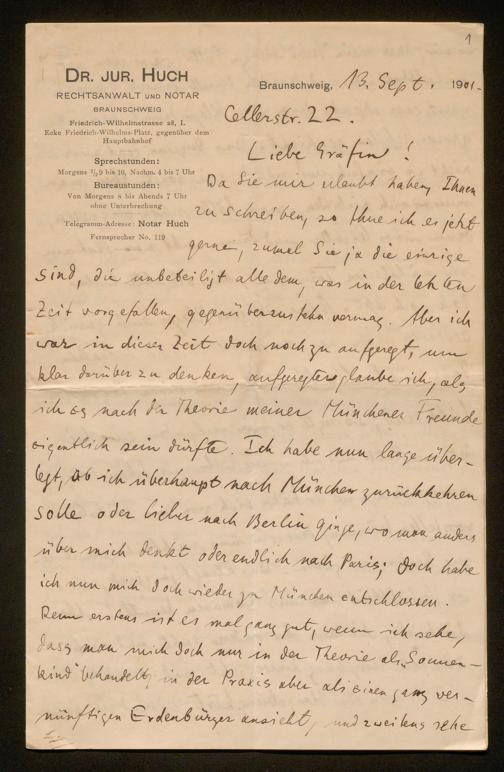 1
DR. JUR. HUCH
RECHTSANWALT UND NOTAR
BRAUNSCHWEIG
Friedrich-Wilhelmstrasse 28, I.
Ecke Friedrich-Wilhelms-Platz, gegenüber dem
Hauptbahnhof
Sprechstunden:
Morgens ½9 bis 10, Nachm. 4 bis 7 Uhr
Bureaustunden:
Von Morgens 8 bis Abends 7 Uhr
ohne Unterbrechung
Telegramm-Adresse: Notar Huch
Fernsprecher No. 119
Braunschweig, 13. Sept. 1901.
Cellerstr. 22.
Liebe Gräfin!
Da Sie mir erlaubt haben, Ihnen
zu schreiben, so thue ich es jetzt
gerne, zumal Sie ja die einzige
sind, die unbeteiligt alle dem, was in der letzten
Zeit vorgefallen, gegenüberzustehn vermag. Aber ich
war in dieser Zeit doch noch zu aufgeregt, um
klar darüber zu denken, aufgeregter glaube ich, als
ich es nach der Theorie meiner Münchener Freunde
eigentlich sein dürfte. Ich habe nun lange über-
legt, ob ich überhaupt nach München zurückkehren
solle oder lieber nach Berlin ginge, wo man anders
über mich denkt oder endlich nach Paris; doch habe
ich nun mich doch wieder zu München entschlossen.
Denn erstens ist es mal ganz gut, wenn ich sehe,
dass man mich doch nur in der Theorie als „Sonnen-
kind" behandelt, in der Praxis aber als einen ganz ver-
nünftigen Erdenbürger ansieht, und zweitens sehe